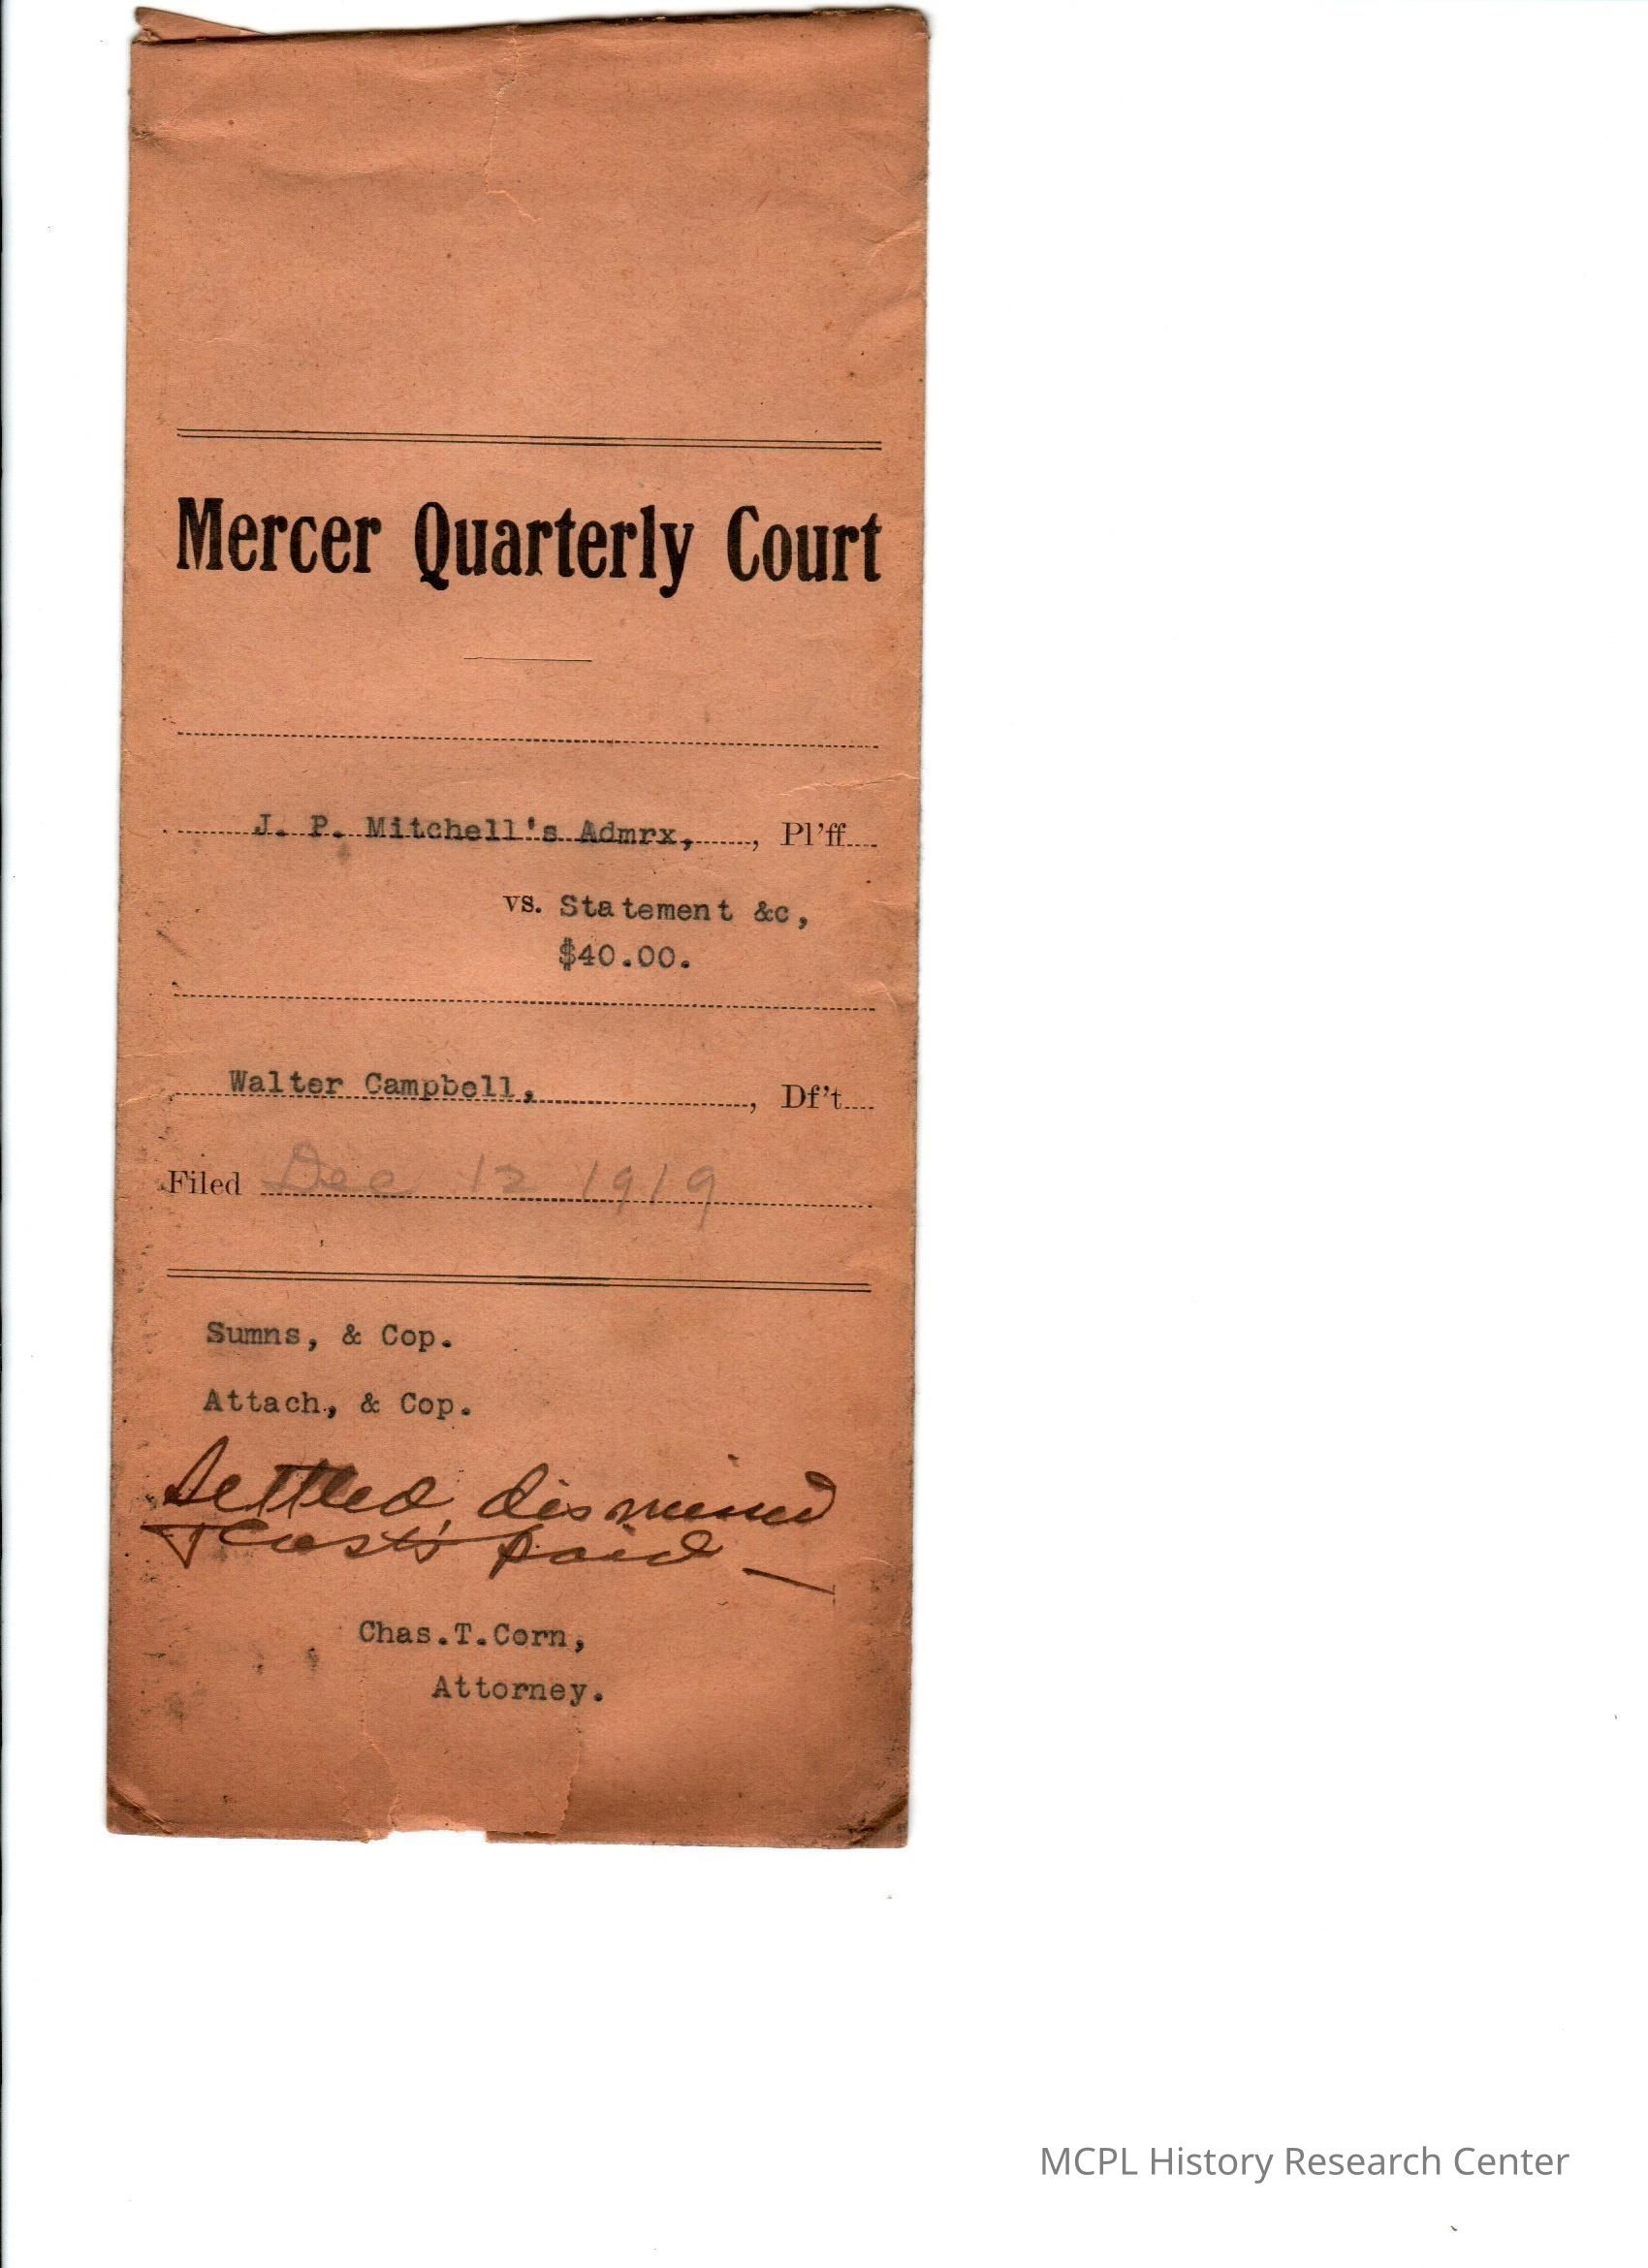 Mercer Quarterly Court
J. P. Mitchell's Admrx, , Pl'ff
vs. Statement &c,
$40.00.
Walter Campbell, , Df't
Filed Dec 12 1919
Sumns, & Cop.
Attach, & Cop.
Settled, dismissed
& Costs paid —
Chas.T.Corn,
Attorney.
MCPL History Research Center